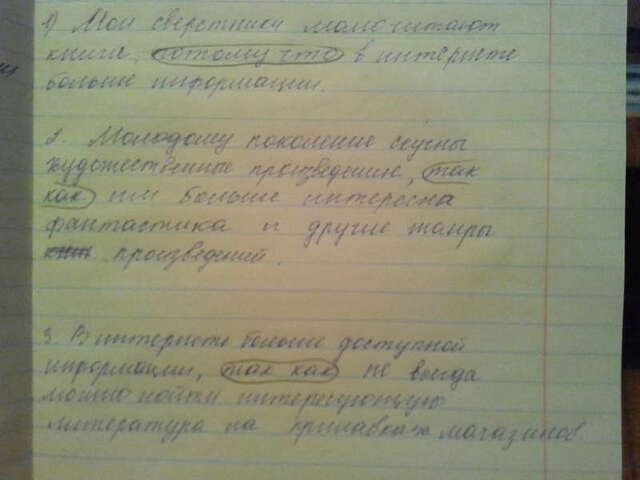 1) Мои сверстники мало читают
книги, потому что в интернете
больше информации.
2. Молодому поколение скучны
художественные произведению, так
как им больше интересна
фантастика и другие жанры
произведений.
3. В интернете больше доступной
информации, так как не всегда
можно найти интересующую
литература на прилавках магазинов.